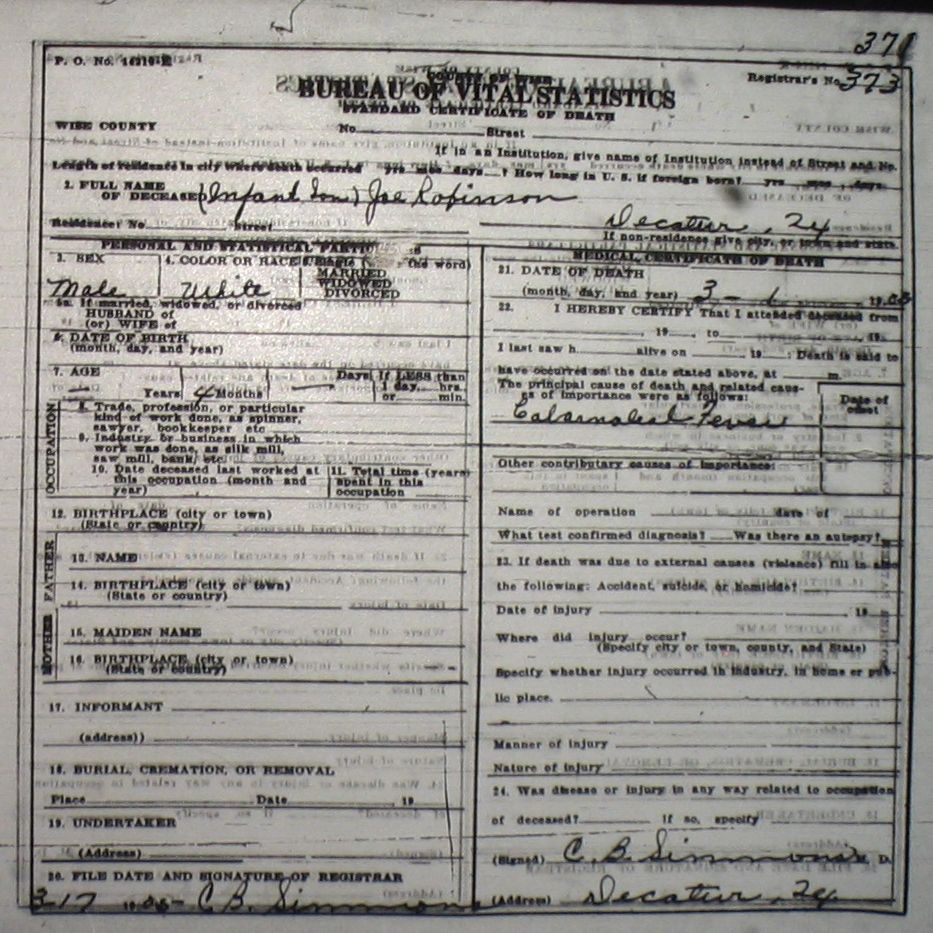 371
P. O. No.
Registrar's No. 373
COUNTY OF WISE
BUREAU OF VITAL STATISTICS
STANDARD CERTIFICATE OF DEATH
WISE COUNTY No. Street
If in an Institution, give name of Institution instead of Street and No.
Length of residence in city where death occurred yrs mos days ? How long in U. S. if foreign born? yrs mos days.
2. FULL NAME
OF DECEASED (Infant Son) Joe Robinson
Residence: No Street Decatur,
If non-residence give city, or town and state
PERSONAL AND STATISTICAL
3. SEX 4. COLOR OR RACE the word)
MARRIED
WIDOWED
DIVORCED
Male White
5a. If married, widowed, or divorced
HUSBAND of
(or) WIFE of
6. DATE OF BIRTH
(month, day, and year)
7. AGE Days If LESS than
1 day, hrs.
Years 4 Months or min.
OCCUPATION
8. Trade, profession, or particular
kind of work done, as spinner,
sawyer, bookkeeper etc
9. Industry or business in which
work was done, as silk mill,
saw mill, bank, etc.
10. Date deceased last worked at
this occupation (month and
year)
11. Total time (years)
spent in this
occupation
12. BIRTHPLACE (city or town)
(State or country)
FATHER
13. NAME
14. BIRTHPLACE (city or town)
(State or country)
MOTHER
15. MAIDEN NAME
16. BIRTHPLACE (city or town)
(State or country)
17. INFORMANT
(address))
18. BURIAL, CREMATION, OR REMOVAL
Place Date 19
19. UNDERTAKER
(Address)
20. FILE DATE AND SIGNATURE OF REGISTRAR
3-17 C. B. Simmons
MEDICAL CERTIFICATE OF DEATH
21. DATE OF DEATH
(month, day, and year) 3-
22. I HEREBY CERTIFY That I attended deceased from
, 19 , to , 19
I last saw h alive on 19 : Death is said to
have occurred on the date stated above, at m.
The principal cause of death and related caus-
es of importance were as follows:
Date of
onset
Fever
Other contributory causes of importance:
Name of operation date of
What test confirmed diagnosis? Was there an autopsy?
23. If death was due to external causes (violence) fill in also
the following: Accident, suicide, or homicide?
Date of injury 19
Where did injury occur?
(Specify city or town, county, and State)
Specify whether injury occurred in industry, in home or pub-
lic place.
Manner of injury
Nature of injury
24. Was disease or injury in any way related to occupation
of deceased? If so, specify
(Signed) C. B. Simmons M. D.
(Address) Decatur,